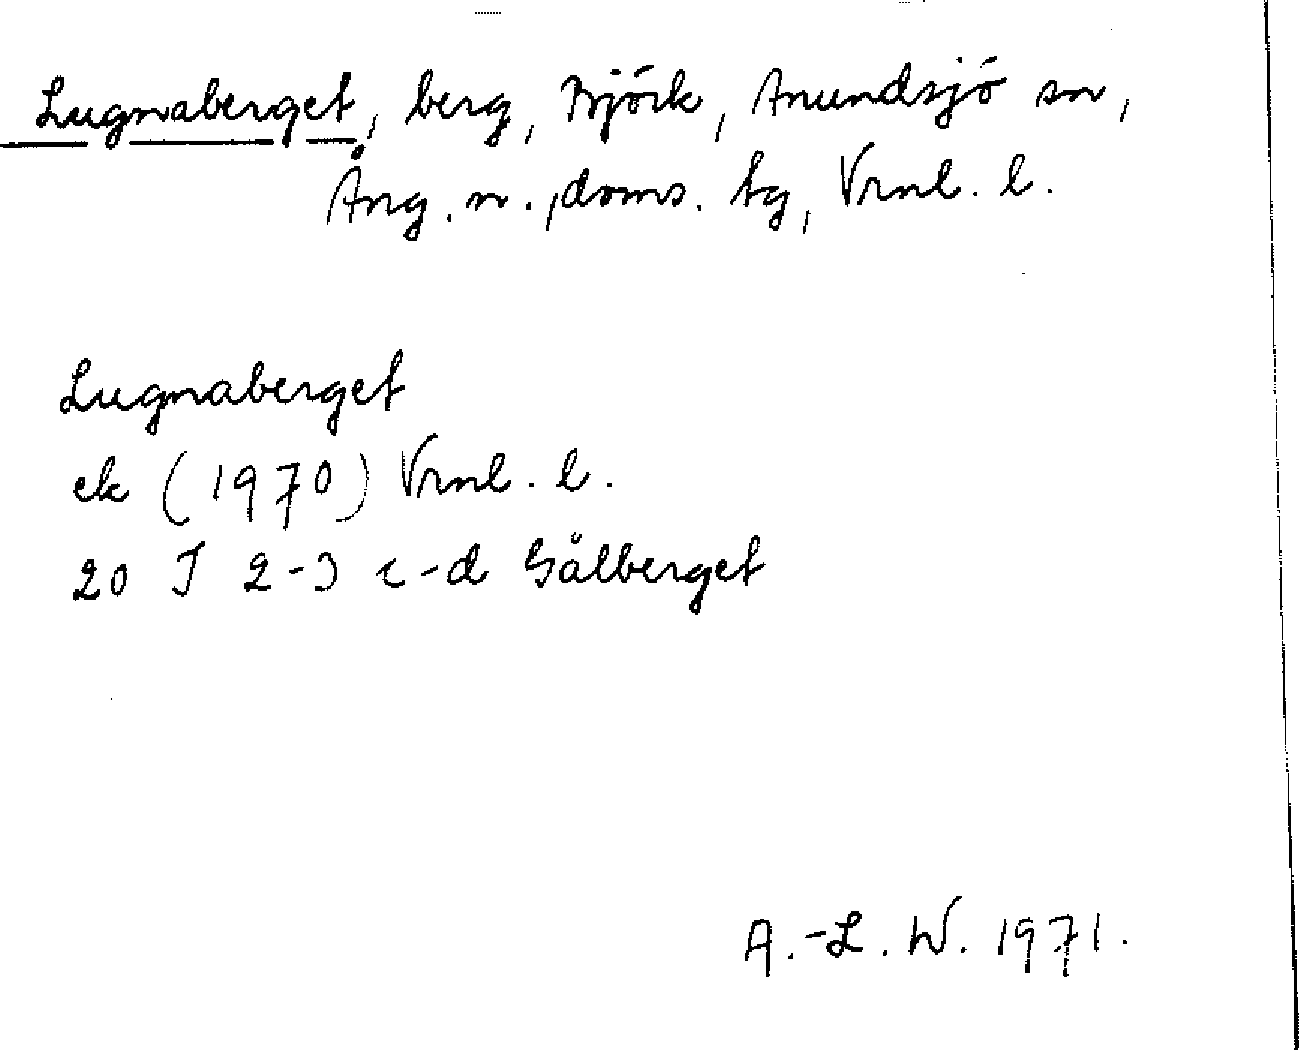 Lugnaberget, berg, Björk, Anundsjö sn,
Ång. n., doms. tg, Vrnl. l.
Lugnaberget
ek (1970) Vrnl. l.
20 J 2-3 c-d Gålberget
A.-L. W. 1971.